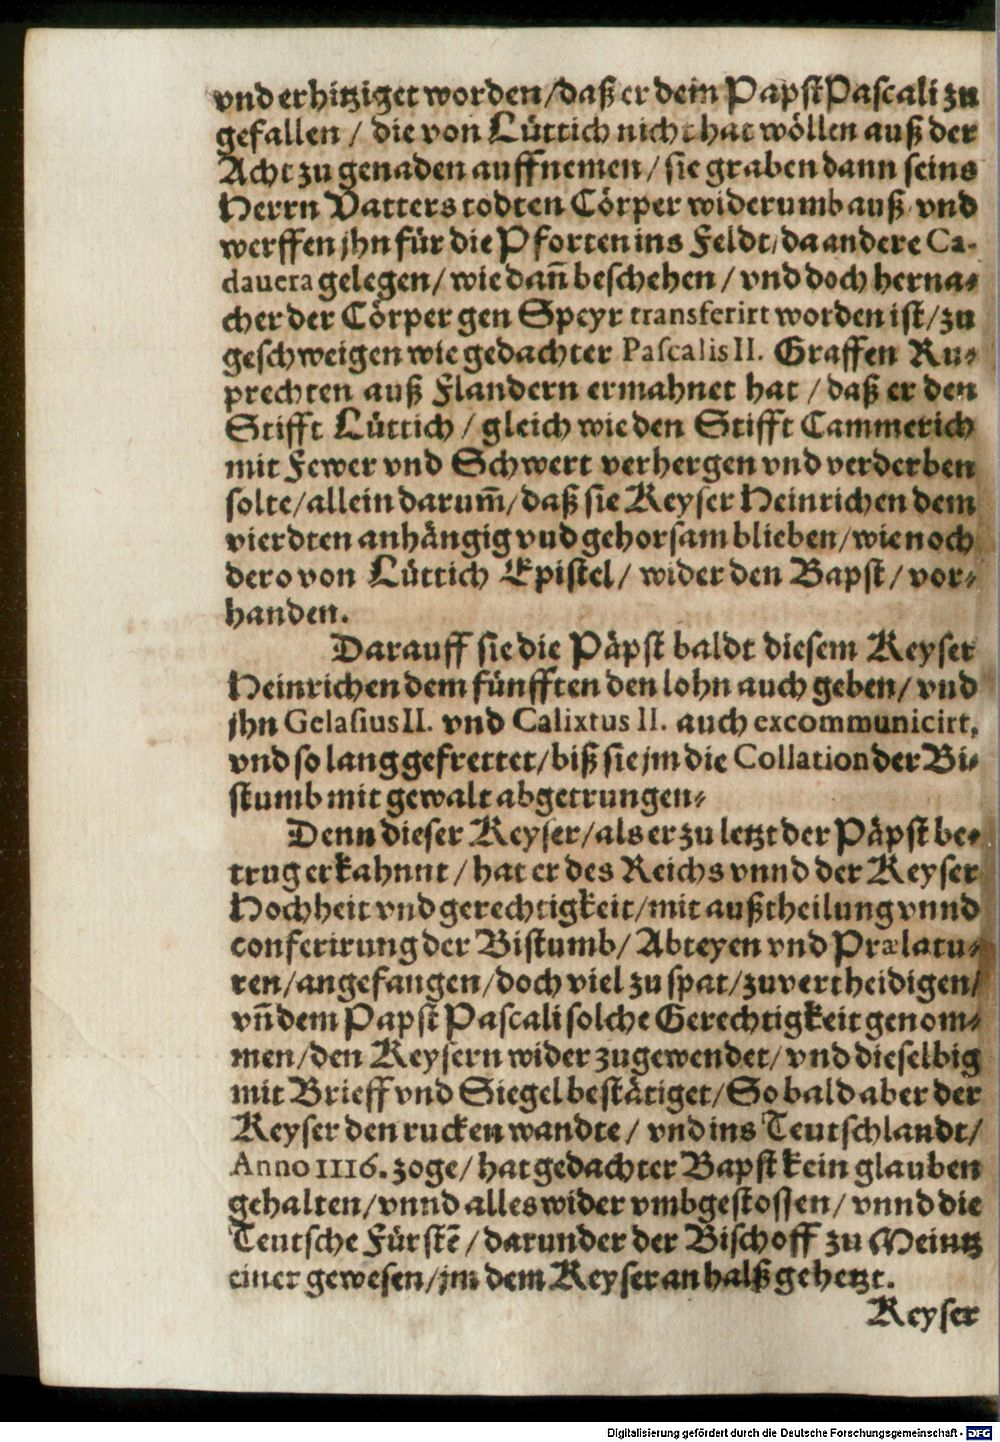 vnd erhitziget worden/daß er dem Papst Pascali zu
gefallen / die von Lüttich nicht hat wöllen auß der
Acht zu genaden auffnemen/ sie graben dann seins
Herrn Vatters todten Cörper widerumb auß vnd
werffen jhn für die Pforten ins Feldt/da andere Ca-
dauera gelegen/ wie dañ beschehen / vnd doch herna-
cher der Cörper gen Speyr transferirt worden ist/zu
geschweigen wie gedachter Pascalis II. Graffen Ru-
prechten auß Flandern ermahnet hat / daß er den
Stifft Lüttich / gleich wie den Stifft Cammerich
mit Fewer vnd Schwert verhergen vnd verderben
solte/allein darum̃/daß sie Keyser Heinrichen dem
vierdten anhängig vud gehorsam blieben/wie noch
dero von Lüttich Epistel/ wider den Bapst/ vor-
handen.
Darauff sie die Päpst baldt diesem Keyser
Heinrichen dem fünfften den lohn auch geben/ vnd
jhn Gelasius II. vnd Calixtus II. auch excommunicirt,
vnd so lang gefrettet/biß sie jm die Collation der Bi-
stumb mit gewalt abgetrungen-
Denn dieser Keyser/als er zu letzt der Päpst be-
trug erkahnnt / hat er des Reichs vnnd der Keyser
Hochheit vnd gerechtigkeit/mit außtheilung vnnd
conferirung der Bistumb/ Abteyen vnd Prælatu-
ren/angefangen/doch viel zu spat/zuvertheidigen/
vñ dem Papst Pascali solche Gerechtigkeit genom-
men/den Keysern wider zugewendet/ vnd dieselbig
mit Brieff vnd Siegel bestätiget/ So bald aber der
Keyser den rucken wandte/ vnd ins Teutschlandt/
Anno 1116. zoge/ hat gedachter Bapst kein glauben
gehalten/vnnd alles wider vmbgestossen/ vnnd die
Teutsche Fürstẽ / darunder der Bischoff zu Meintz
einer gewesen/jm dem Keyser an halß gehetzt.
Keyser
Digitalisierung gefördert durch die Deutsche Forschungsgemeinschaft - DFG